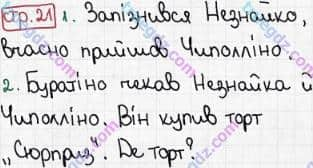 стр. 21 1. Запізнився Незнайко,
вчасно прийшов Чиполліно.
2. Буратіно чекав Незнайка й
Чиполліно. Він купив торт
„Сюрприз". Де торт?